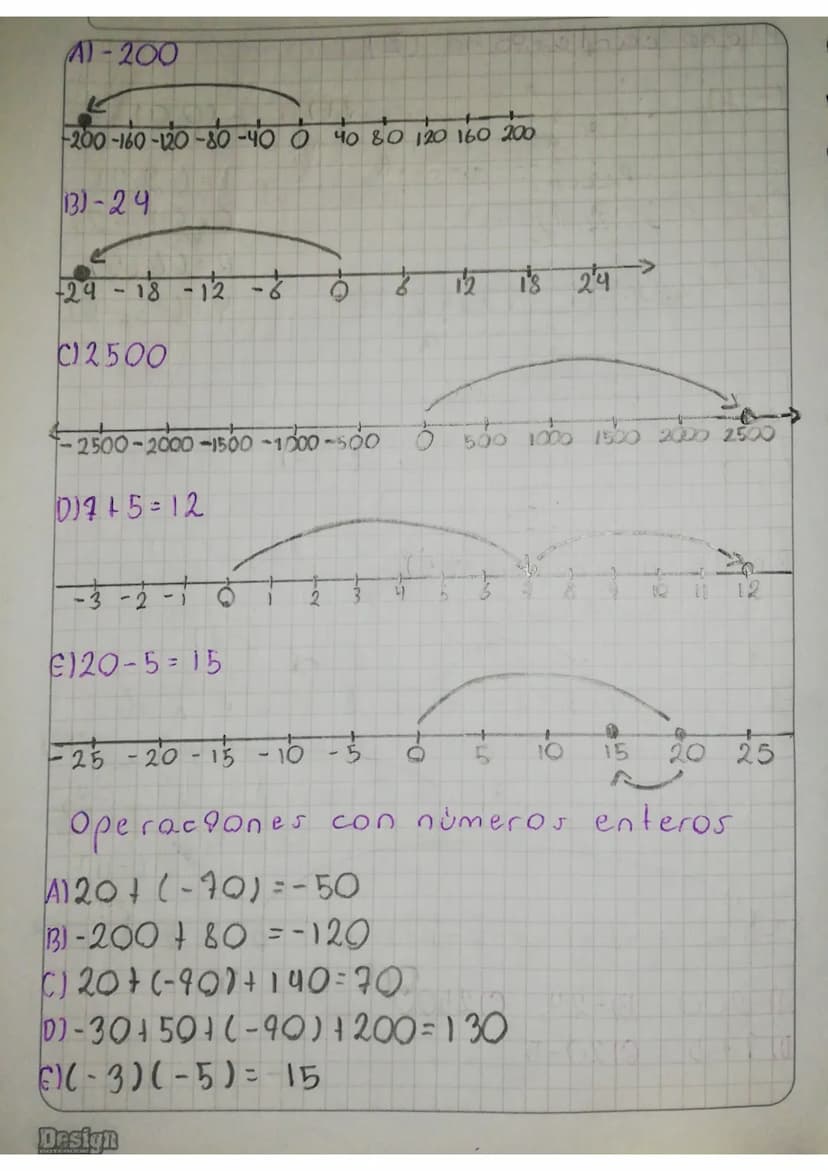 A) -200
-200 -160 -120 -80 -40 0 40 80 120 160 200
B) -24
-24 -18 -12 -6 0 6 12 18 24
C) 2500
-2500 -2000 -1500 -1000 -500 0 500 1000 1500 2000 2500
D) 7+5=12
-3 -2 -1 0 1 2 3 4 5 6 7 8 9 10 11 12
E) 20-5=15
-25 -20 -15 -10 -5 0 5 10 15 20 25
Operaciones con números enteros
A) 20+(-70)=-50
B) -200+80=-120
C) 20+(-90)+140=70
D) -30+50+(-90)+200=130
E) (-3)(-5)= 15
Design